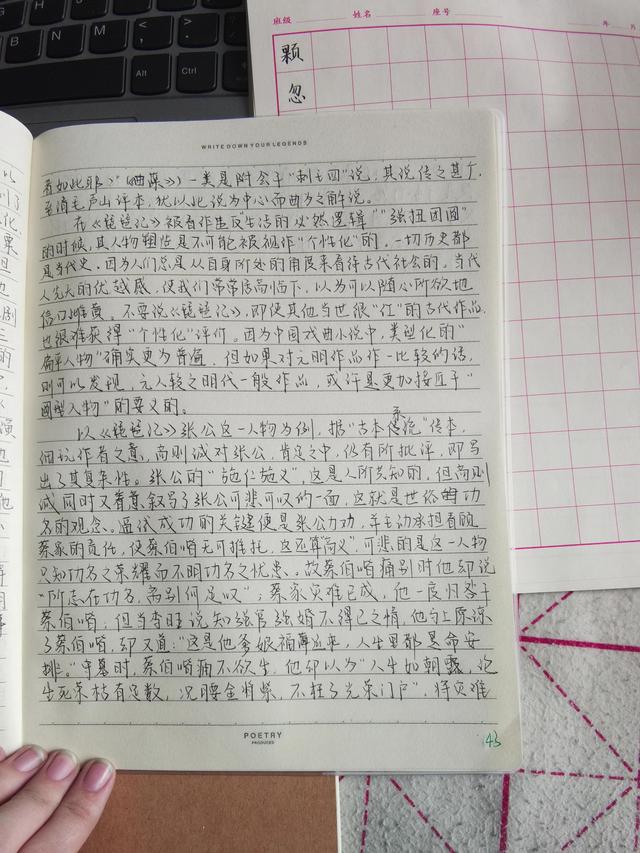 班级 姓名 座号 年 月
颗
忽
Alt Ctrl
WRITE DOWN YOUR LEGENDS
有如此耶？》《曲藻》）一类是附会于“刺王四”说，其说传之甚广，
至清毛声山评本，犹以此说为中心而曲为之解说。
在《琵琶记》被看作违反“生活的必然逻辑”“强扭团圆”
的时候，其人物塑造是不可能被视作“个性化”的。一切历史都
是当代史。因为人们总是从自身所处的角度来看待古代社会的，当代
人先天的优越感，使我们常常居高临下，以为可以随心所欲地
信口雌黄。不要说《琵琶记》，即使其他当世很“红”的古代作品，
也很难获得“个性化”评价。因为中国戏曲小说中，类型化的“
扁平人物”确实更为普遍。但如果对元明作品作一比较的话，
则可以发现，元人较之明代一般作品，或许是更加接近于“
圆型人物”的要义的。
以《琵琶记》张公这一人物为例，据“古本系统”传本，
细玩作者之意，高则诚对张公，肯定之中，仍有所批评，即写
出了其复杂性。张公的“施仁施义”，这是人所共知的，但高则
诚同时又着意叙写了张公可悲可叹的一面，这就是世俗的功
名的观念。逼试成功的关键便是张公力劝，并主动承担看顾
蔡家的责任，使蔡伯喈无可推托，这还算“高义”，可悲的是这一人物
只知功名之荣耀而不明功名之忧患。故蔡伯喈痛别时他却说
“所志在功名，离别何足叹”；蔡家灾难已成，他一度归咎于
蔡伯喈，但当李旺说知强官强婚不得已之情，他马上原谅
了蔡伯喈，却又道：“这是他爹娘福薄运来，人生里都是命安
排。”守墓时，蔡伯喈痛不欲生，他却以为“人生如朝露，论
生死荣枯有定数，况腰金将紫，不枉了光荣门户”，将灾难
POETRY
PRODUCED
43